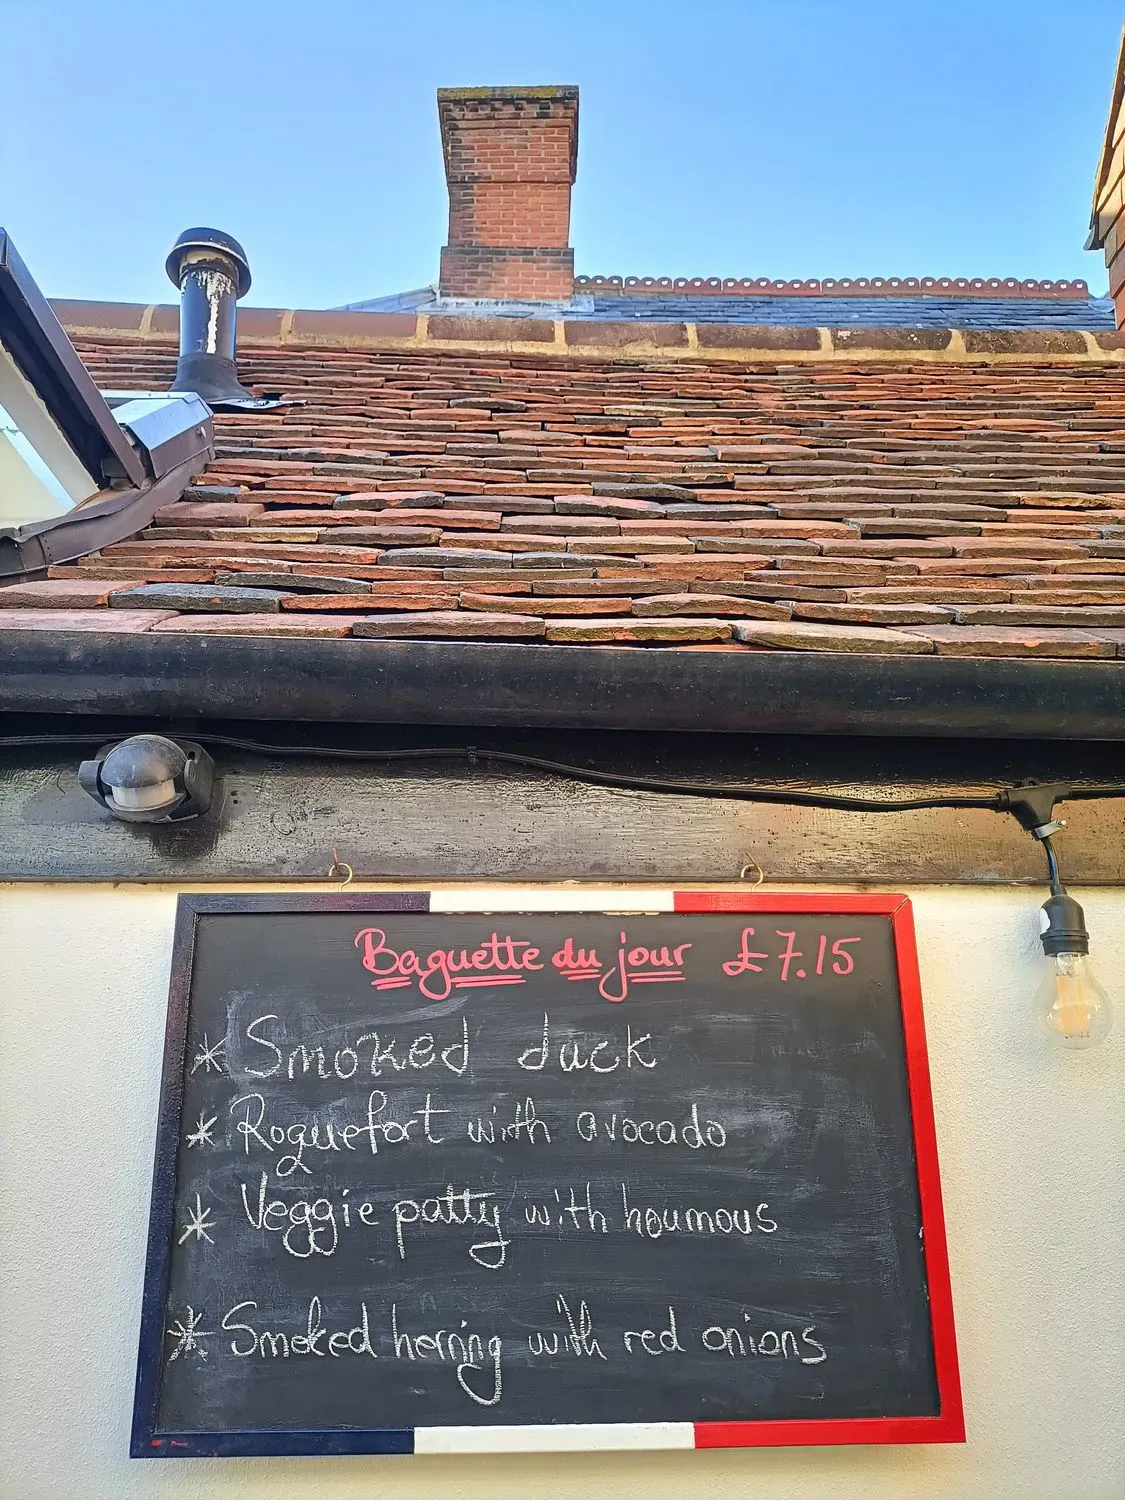 Baguette du jour £7.15
* Smoked duck
* Roquefort with avocado
* Veggie patty with houmous
* Smoked herring with red onions